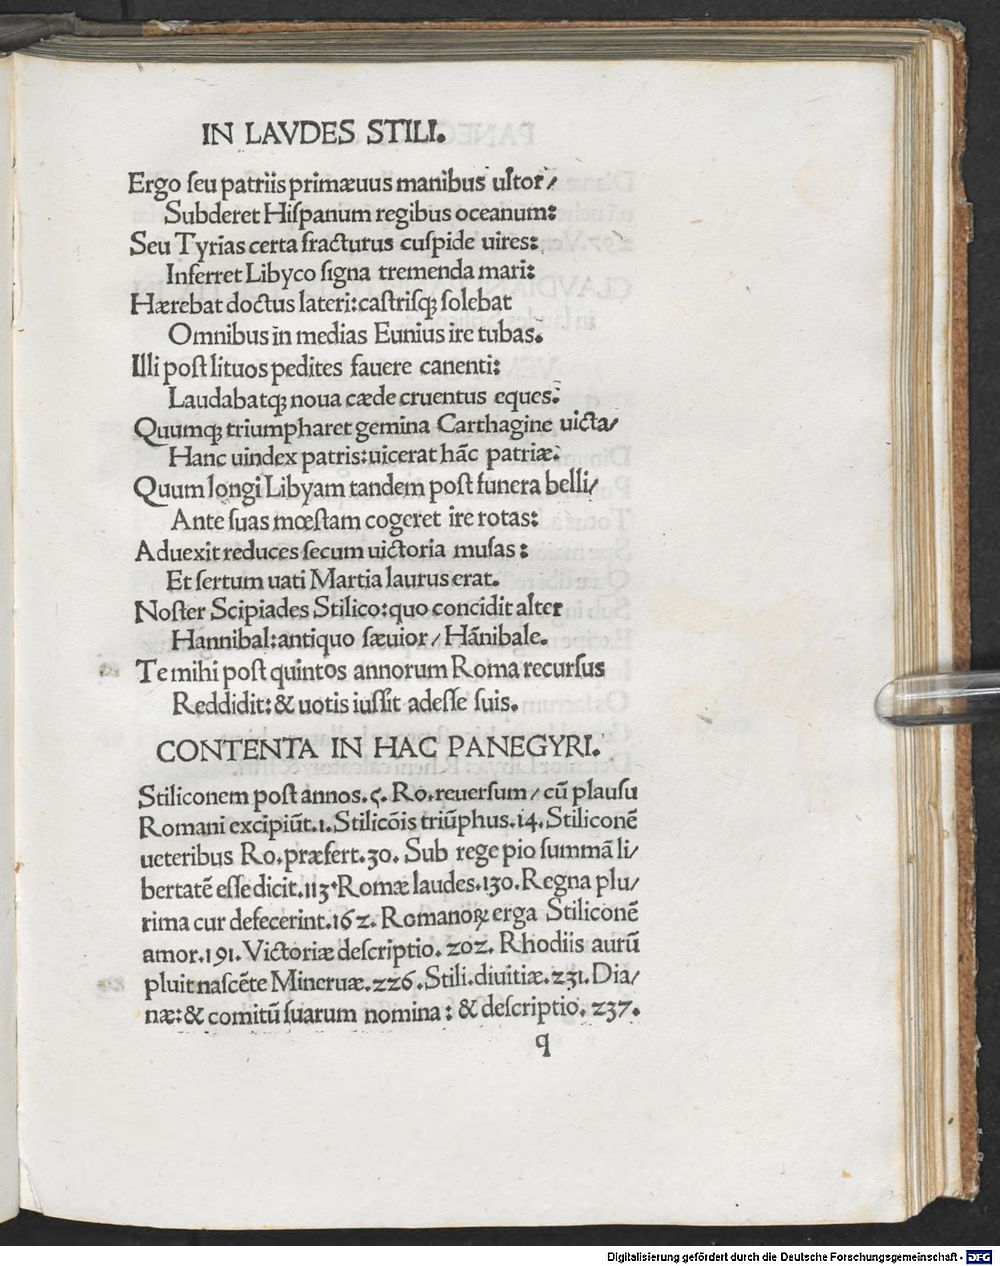 IN LAVDES STILI.
Ergo seu patriis primæuus manibus ultor/
Subderet Hispanum regibus oceanum:
Seu Tyrias certa fracturus cuspide uires:
Inferret Libyco signa tremenda mari:
Hærebat doctus lateri: castrisqꝫ solebat
Omnibus in medias Eunius ire tubas.
Illi post lituos pedites fauere canenti:
Laudabatqꝫ noua cæde cruentus eques.
Quumqꝫ triumpharet gemina Carthagine uicta/
Hanc uindex patris: uicerat hāc patriæ.
Quum longi Libyam tandem post funera belli/
Ante suas mœstam cogeret ire rotas:
Aduexit reduces secum uictoria musas:
Et sertum uati Martia laurus erat.
Noster Scipiades Stilico: quo concidit alter
Hannibal: antiquo sæuior/ Hānibale.
Te mihi post quintos annorum Roma recursus
Reddidit: & uotis iussit adesse suis.
CONTENTA IN HAC PANEGYRI.
Stiliconem post annos.5. Ro. reuersum/ cū plausu
Romani excipiūt.1. Stilicōis triūphus.14. Stiliconē
ueteribus Ro. præfert.30. Sub rege pio summā li/
bertatē esse dicit.113. Romæ laudes.130. Regna plu/
rima cur defecerint.162. Romanoꝝ erga Stiliconē
amor.191. Victoriæ descriptio.202. Rhodiis aurū
pluit nascēte Mineruæ.226. Stili. diuitiæ.231. Dia/
næ: & comitū suarum nomina: & descriptio.237.
q
Digitalisierung gefördert durch die Deutsche Forschungsgemeinschaft - DFG